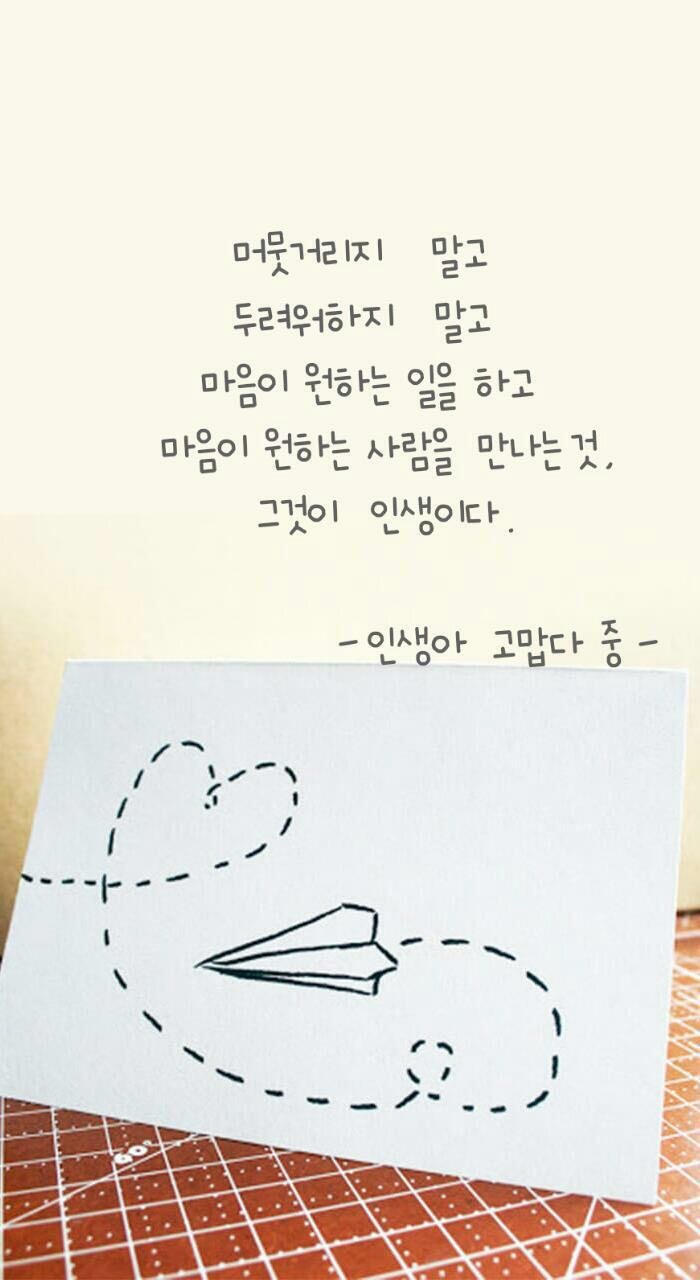 머뭇거리지 말고
두려워하지 말고
마음이 원하는 일을 하고
마음이 원하는 사람을 만나는것,
그것이 인생이다.
-인생아 고맙다 중-
60°